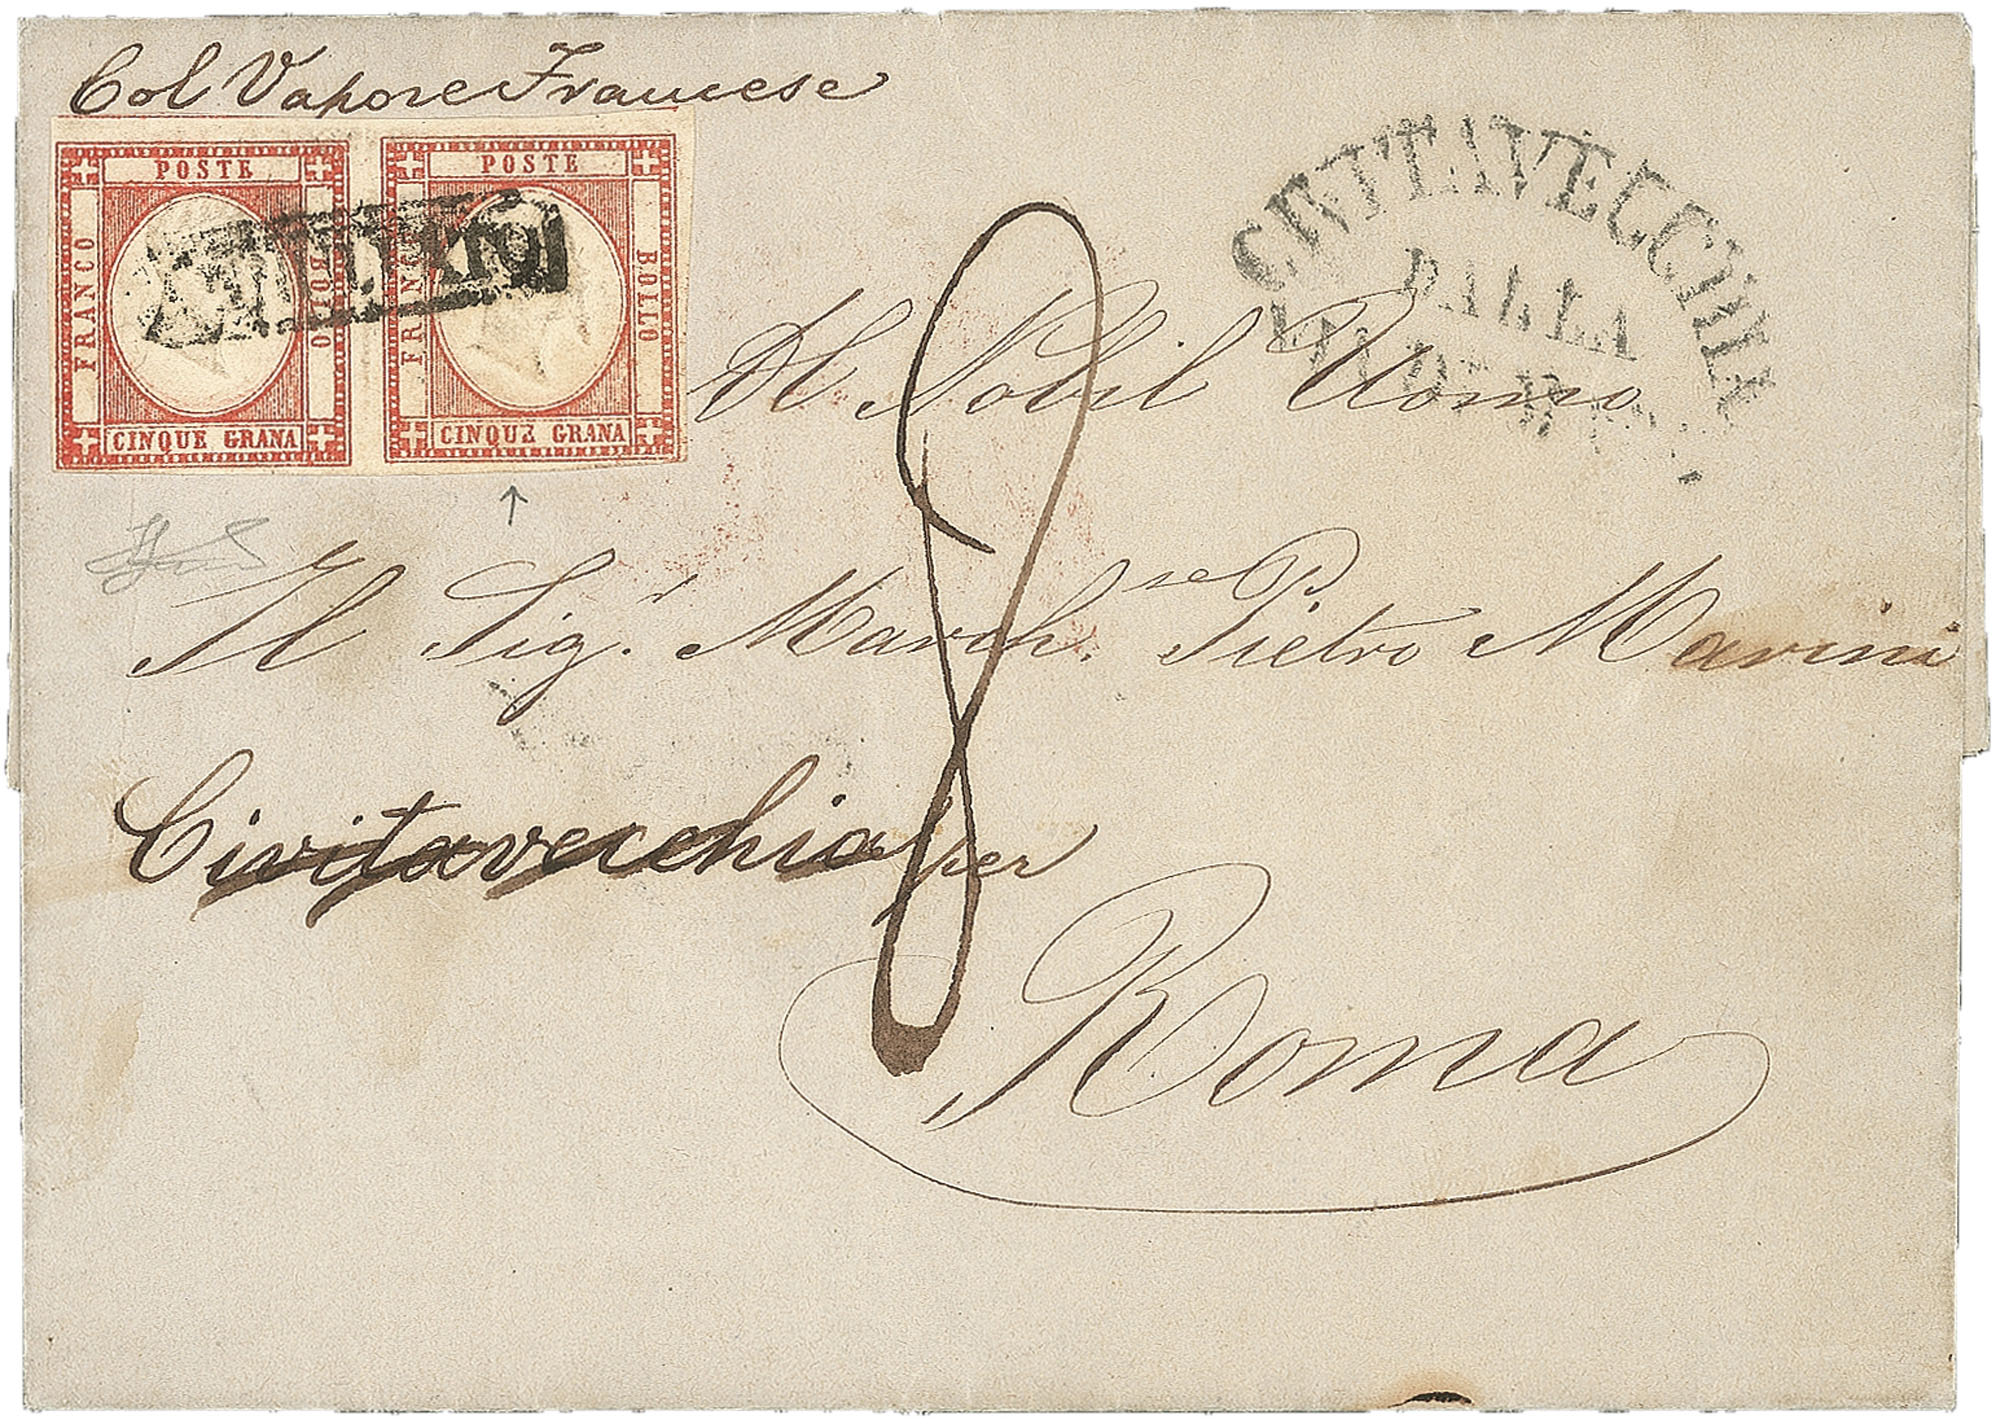 Col Vapore Francese
POSTE
FRANCO
BOLLO
CINQUE GRANA
POSTE
FRANCO
BOLLO
CINQUE GRANA
CIVITAVECCHIA
DALLA
8
Al Nobil Uomo
Il Sig.r March.se Pietro Marini
Civitavecchia per
Roma